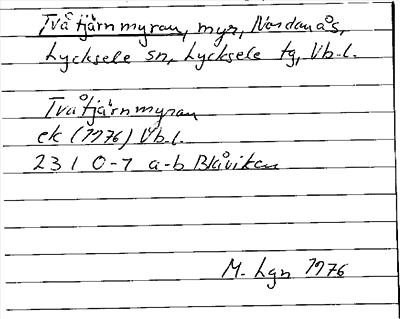 Tvåtjärnmyran, myr, Nordanås,
Lycksele sn, Lycksele tg, Vb.l.
Tvåtjärnmyran
ek (1976) Vb.l.
23 I 0-7 a-b Blåviken
M. Lgn 1976